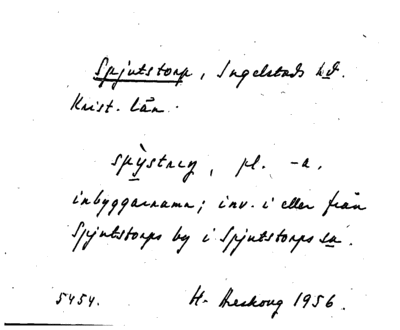 Spjutstorp, Ingelstads hd.
Krist. län.
pl. -a.
inbyggarnamn; inv. i eller från
Spjutstorps by i Spjutstorps sn.
5454. H. Areskoug 1956.